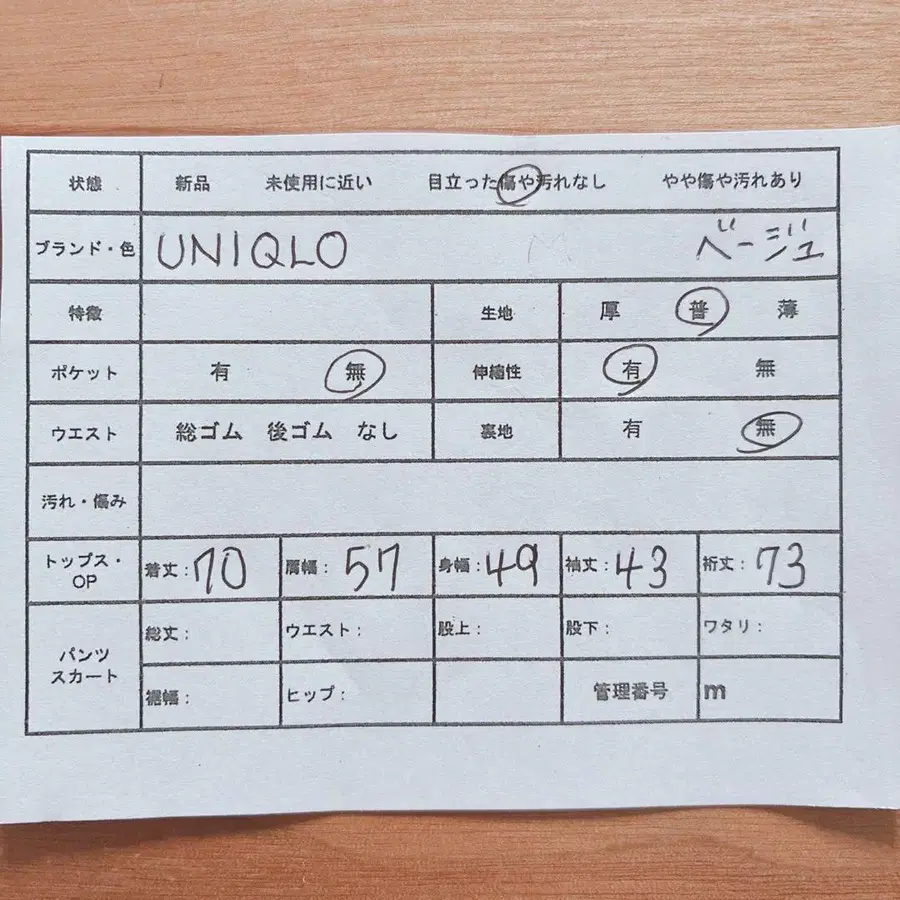 状態 新品 未使用に近い 目立った傷や汚れなし やや傷や汚れあり
ブランド・色 UNIQLO M ベージュ
特徴 生地 厚 普 薄
ポケット 有 無 伸縮性 有 無
ウエスト 総ゴム 後ゴム なし 裏地 有 無
汚れ・傷み
トップス・OP 着丈：70 肩幅：57 身幅：49 袖丈：43 裄丈：73
パンツ スカート 総丈： ウエスト： 股上： 股下： ワタリ：
裾幅： ヒップ： 管理番号 m